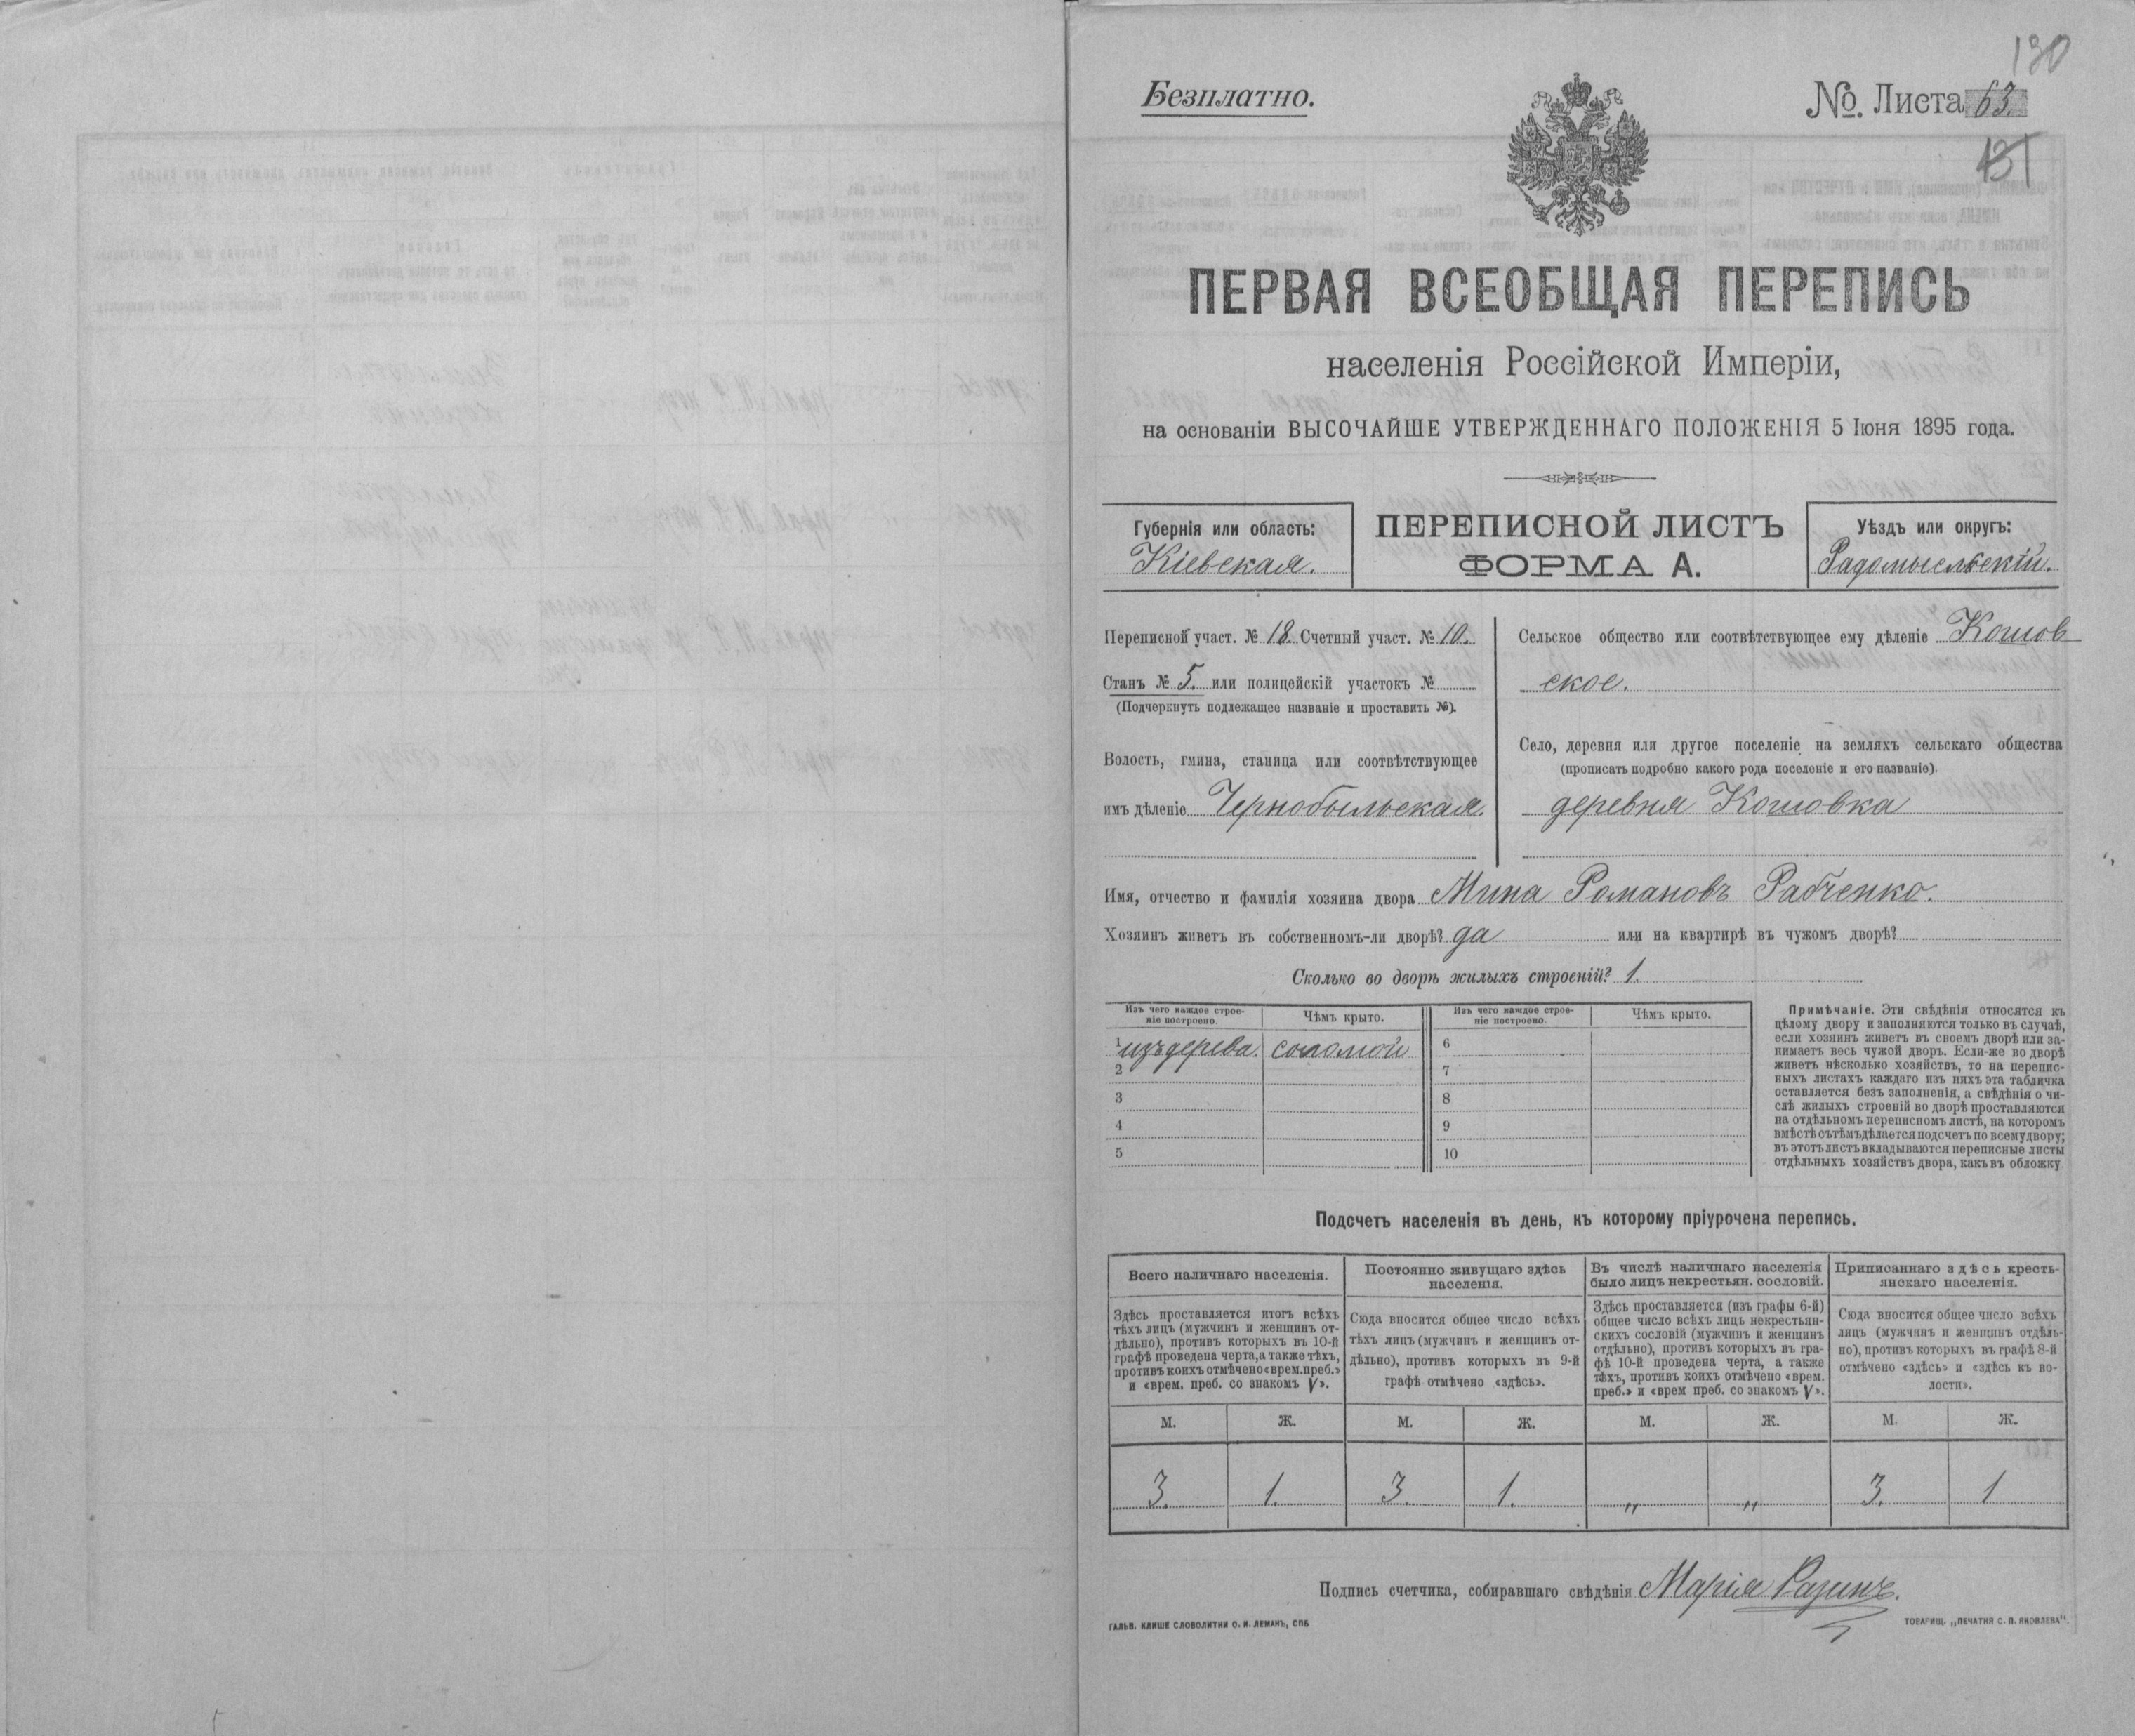 130
Безплатно.
№. Листа 63.
131
ПЕРВАЯ ВСЕОБЩАЯ ПЕРЕПИСЬ
населенія Россійской Имперіи,
на основаніи ВЫСОЧАЙШЕ УТВЕРЖДЕННАГО ПОЛОЖЕНІЯ 5 Іюня 1895 года.
Губернія или область:
Кіевская.
ПЕРЕПИСНОЙ ЛИСТЪ
ФОРМА А.
Уѣздъ или округъ:
Радомысльскій.
Переписной участ. № 18. Счетный участ. № 10.
Станъ № 5. или полицейскій участокъ №
(Подчеркнуть подлежащее названіе и проставить №).
Волость, гмина, станица или соотвѣтствующее
имъ дѣленіе Чернобыльская.
Сельское общество или соотвѣтствующее ему дѣленіе Кошов
ское.
Село, деревня или другое поселеніе на земляхъ сельскаго общества
(прописать подробно какого рода поселеніе и его названіе).
деревня Кошовка
Имя, отчество и фамилія хозяина двора Мина Романовъ Рабченко.
Хозяинъ живетъ въ собственномъ-ли дворѣ? да или на квартирѣ въ чужомъ дворѣ?
Сколько во дворѣ жилыхъ строеній? 1.
Изъ чего каждое строе-
ніе построено.
Чѣмъ крыто.
Изъ чего каждое строе-
ніе построено.
Чѣмъ крыто.
1 изъ дерева. соломой 6
2 7
3 8
4 9
5 10
Примѣчаніе. Эти свѣдѣнія относятся къ
цѣлому двору и заполняются только въ случаѣ,
если хозяинъ живетъ въ своемъ дворѣ или за-
нимаетъ весь чужой дворъ. Если-же во дворѣ
живетъ нѣсколько хозяйствъ, то на перепис-
ныхъ листахъ каждаго изъ нихъ эта табличка
оставляется безъ заполненія, а свѣдѣнія о чи-
слѣ жилыхъ строеній во дворѣ проставляются
на отдѣльномъ переписномъ листѣ, на которомъ
вмѣстѣ съ тѣмъ дѣлается подсчетъ по всему двору;
въ этотъ листъ вкладываются переписные листы
отдѣльныхъ хозяйствъ двора, какъ въ обложку.
Подсчетъ населенія въ день, къ которому пріурочена перепись.
Всего наличнаго населенія.
Здѣсь проставляется итогъ всѣхъ
тѣхъ лицъ (мужчинъ и женщинъ от-
дѣльно), противъ которыхъ въ 10-й
графѣ проведена черта, а также тѣхъ,
противъ коихъ отмѣчено «врем. преб.»
и «врем. преб. со знакомъ V».
Постоянно живущаго здѣсь
населенія.
Сюда вносится общее число всѣхъ
тѣхъ лицъ (мужчинъ и женщинъ от-
дѣльно), противъ которыхъ въ 9-й
графѣ отмѣчено «здѣсь».
Въ числѣ наличнаго населенія
было лицъ некрестьян. сословій.
Здѣсь проставляется (изъ графы 6-й)
общее число всѣхъ лицъ некрестьян-
скихъ сословій (мужчинъ и женщинъ
отдѣльно), противъ которыхъ въ гра-
фѣ 10-й проведена черта, а также
тѣхъ, противъ коихъ отмѣчено «врем.
преб.» и «врем преб. со знакомъ V».
Приписаннаго здѣсь кресть-
янскаго населенія.
Сюда вносится общее число всѣхъ
лицъ (мужчинъ и женщинъ отдѣль-
но), противъ которыхъ въ графѣ 8-й
отмѣчено «здѣсь» и «здѣсь къ во-
лости».
М. Ж. М. Ж. М. Ж. М. Ж.
3. 1. 3. 1. „ „ 3. 1
Подпись счетчика, собиравшаго свѣдѣнія Марія
ГАЛЬВ. КЛИШЕ СЛОВОЛИТНИ О. И. ЛЕМАНЪ, СПБ
ТОВАРИЩ. „ПЕЧАТНЯ С. П. ЯКОВЛЕВА“.